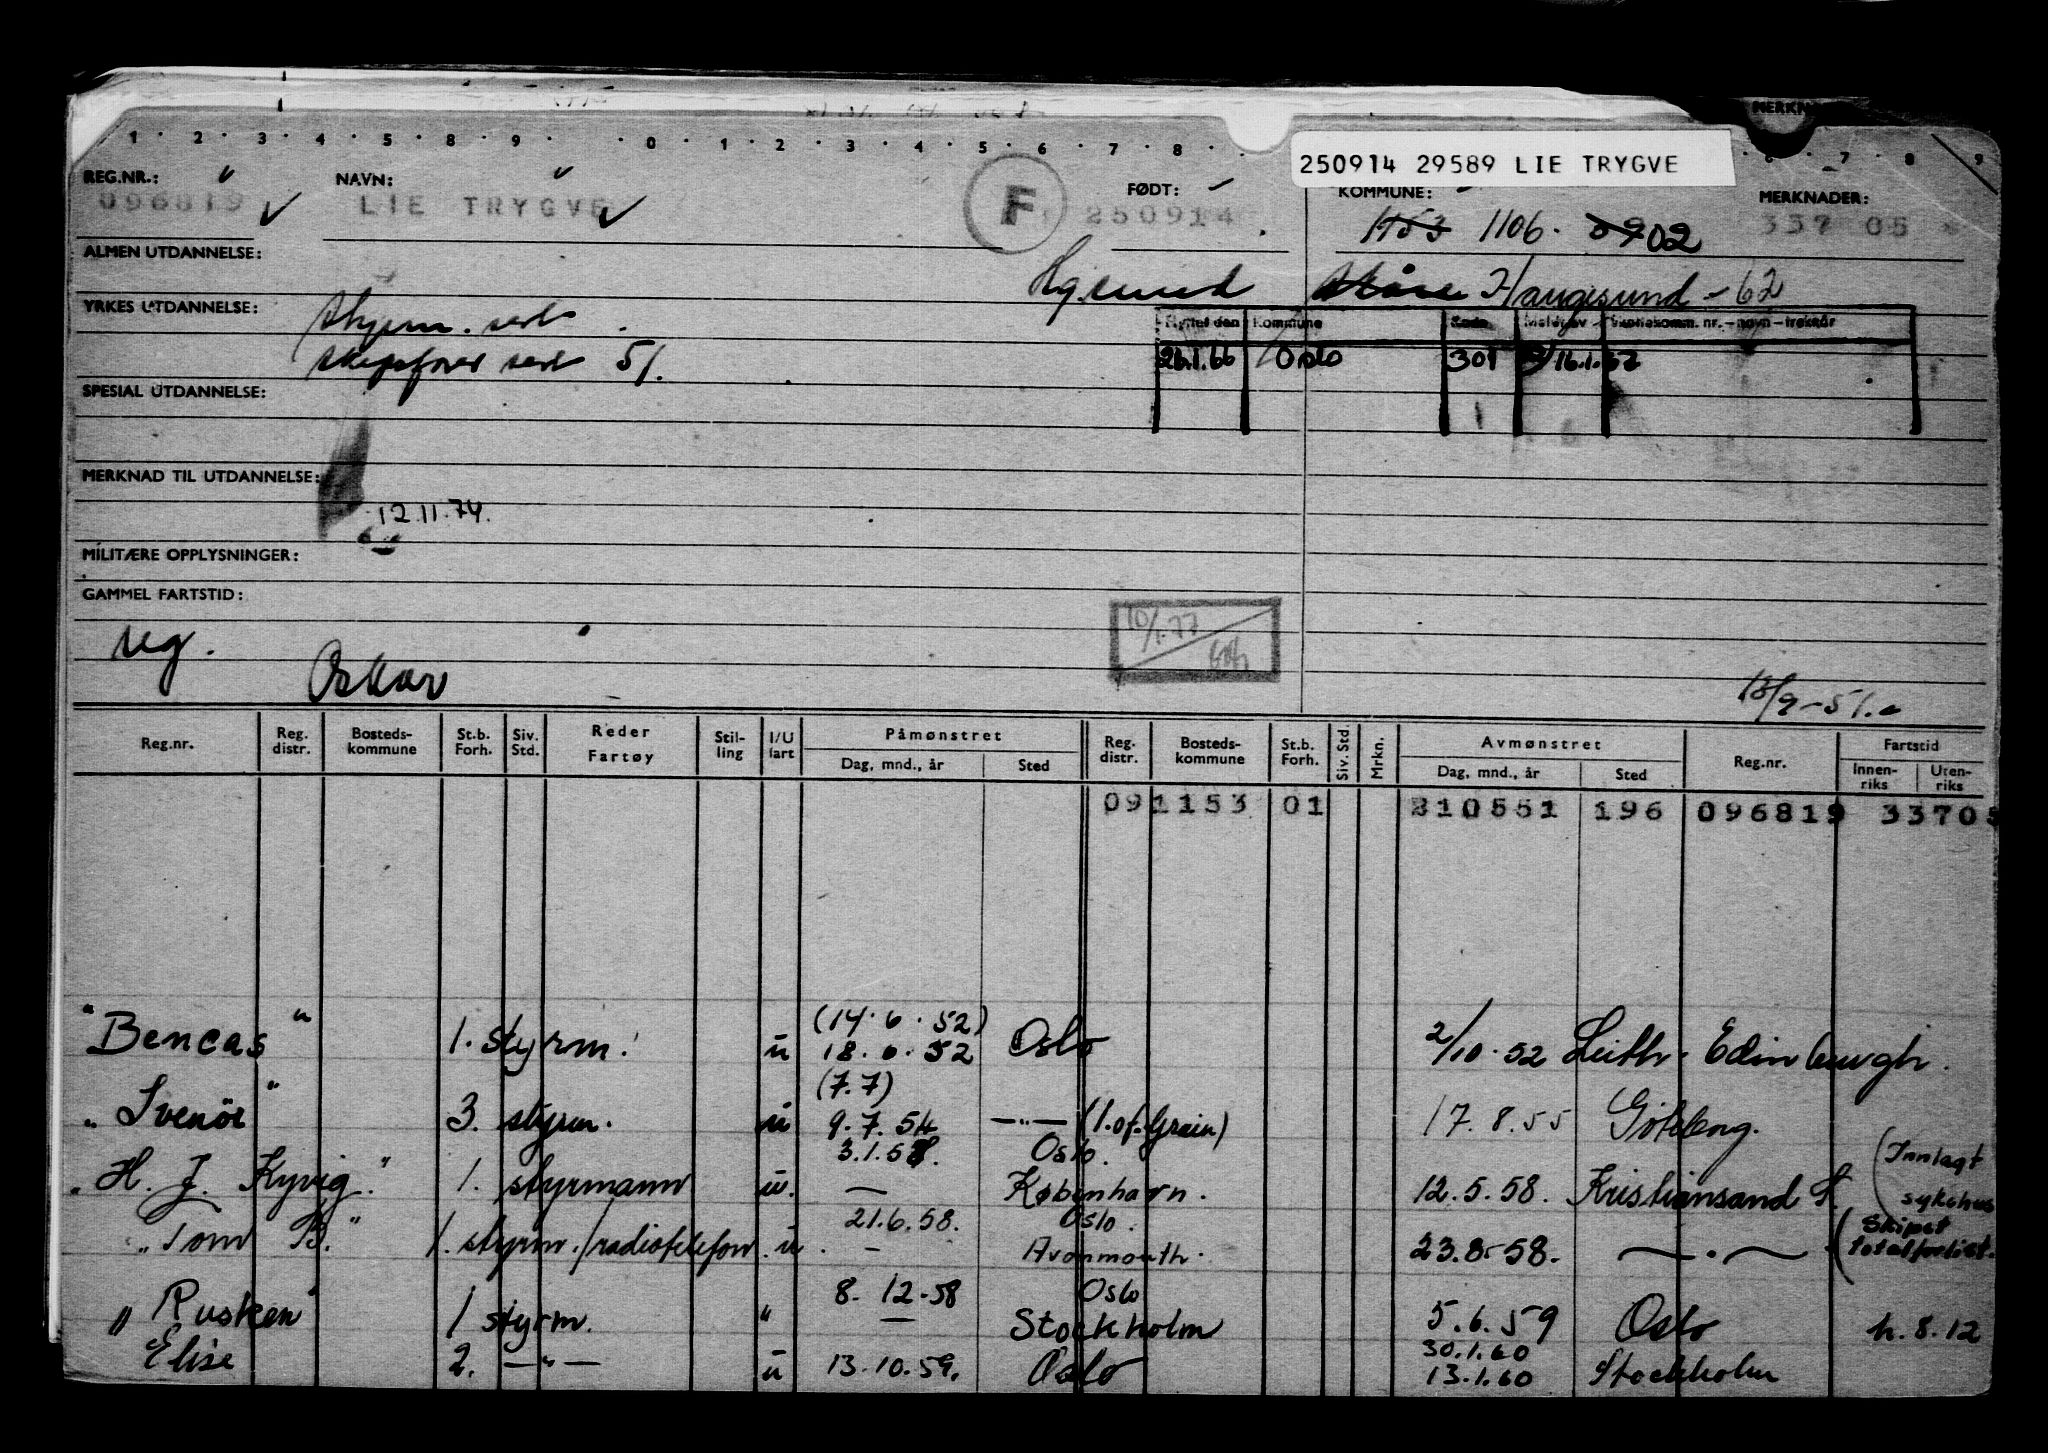 250914 29589 LIE TRYGVE
MERKN
1 · 2 · 3 · 4 · 5 · 8 · 9 · · 0 · 1 · 2 · 3 · 4 · 5 · 6 · 7 · 8 · 6 · 7 · 8 9
REG.NR.: NAVN: FØDT: KOMMUNE: MERKNADER:
096819 LIE TRYGVE F 250914 1153 1106. 0902 337 05
ALMEN UTDANNELSE:
Hgsund Skåre Haugesund - 62
YRKES UTDANNELSE: styrm. sert.
Flyttet den Kommune Kode
skipsfører sert 51. 26.1.66 Oslo 301 16.1.52
SPESIAL UTDANNELSE:
MERKNAD TIL UTDANNELSE:
12.11.74.
MILITÆRE OPPLYSNINGER:
GAMMEL FARTSTID:
reg. 10/1.77
Oskar
13/9-51.
Reg.nr. Reg. distr. Bosteds-kommune St.b. Forh. Siv. Std. Reder Fartøy Stil-ling I/U fart Påmønstret Dag, mnd., år Sted Reg. distr. Bosteds-kommune St.b. Forh. Siv. Std. Mrkn. Avmønstret Dag, mnd., år Sted Reg.nr. Fartstid Innen-riks Uten-riks
09 1153 01 210551 196 096819 33705
(14.6.52)
"Bencas" 1. styrm. u 18.6.52 Oslo 2/10.52 Leith-Edinburgh.
(7.7)
" Svenör " 3. styrm. u 9.7.54 —"— (1.of.Grain) 17.8.55 Göteborg.
3.1.58. Oslo. (Innlagt
"H. J. Kyvig." 1. styrmann u. — København. 12.5.58. Kristiansand S. sykehus
21.6.58. Oslo. (Skipet
"Tom B." 1. styrm./radiotelefon. u. — Avonmouth. 23.8.58. —.— totalforlist.
8.12.58 Oslo
" Rusken" 1 styrm. " — Stockholm 5.6.59 Oslo h.8.12
30.1.60
Elise 2. —"— u 13.10.59. Oslo 13.1.60 Stockholm